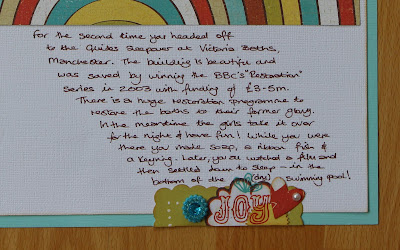 For the second time you headed off
to the Guides sleepover at Victoria Baths,
Manchester. The building is beautiful and
was saved by winning the BBC's "Restoration"
series in 2003 with funding of £3.5m.
There is a huge restoration programme to
restore the baths to their former glory.
In the meantime the girls take it over
for the night & have fun! While you were
there you made soap, a ribbon fish &
a keyring. Later, you watched a film and
then settled down to sleep - in the
bottom of the (dry) swimming pool!
JOY